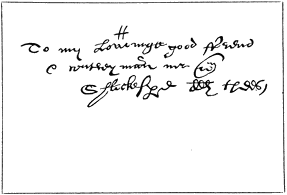 To my Loveinge good ffrend
& contreymann mr wm
Shackespe thees